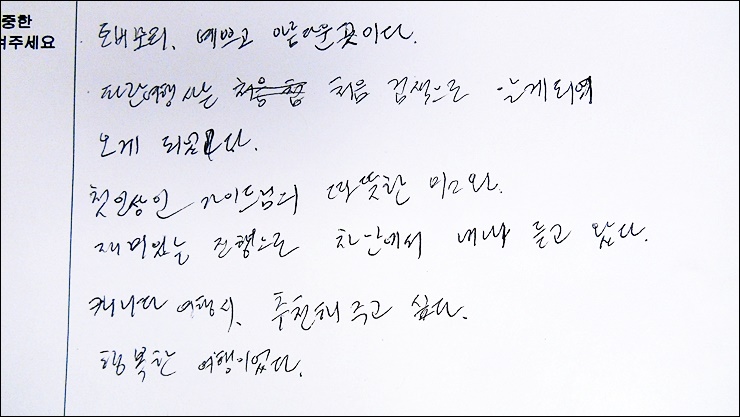 중한
겨주세요
토버모리. 예쁘고 아름다운 곳이다.
파란여행사는 처음 검색으로 알게되어
오게 되었다.
첫인상인 가이드님의 따뜻한 미소와
재미있는 진행으로 차안에서 내내 듣고 왔다.
캐나다 여행시, 추천해 주고 싶다.
행복한 여행이었다.